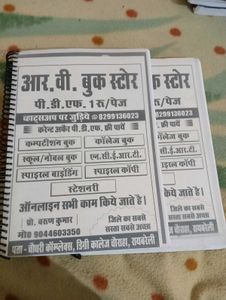 आर.वी. बुक स्टोर
पी.डी.एफ. 1 रु/पेज
व्हाट्सअप पर जुड़िये 8299136023
करेन्ट अफेर पी.डी.एफ. फ्री पायें
कम्पटीशन बुक
कॉलेज बुक
स्कूल/नोबल बुक
एन.सी.ई.आर.टी.
स्पाइरल बाईंडिंग
स्पाइरल कॉपी
स्टेशनरी
ऑनलाइन सभी काम किये जाते है।
प्रो. वरुण कुमार
मो० 9044603350
जिले का सबसे
सस्ता सबसे अच्छा
पता - चौधरी कॉम्प्लेक्स, डिग्री कालेज चौराहा, रायबरेली
स्टोर
रु/पेज
8299136023
फ्री पायें
कॉलेज बुक
सी.ई.आर.टी.
स्पाइरल कॉपी
किये जाते है।
जिले का सबसे
सस्ता सबसे अच्छा
चौराहा, रायबरेली